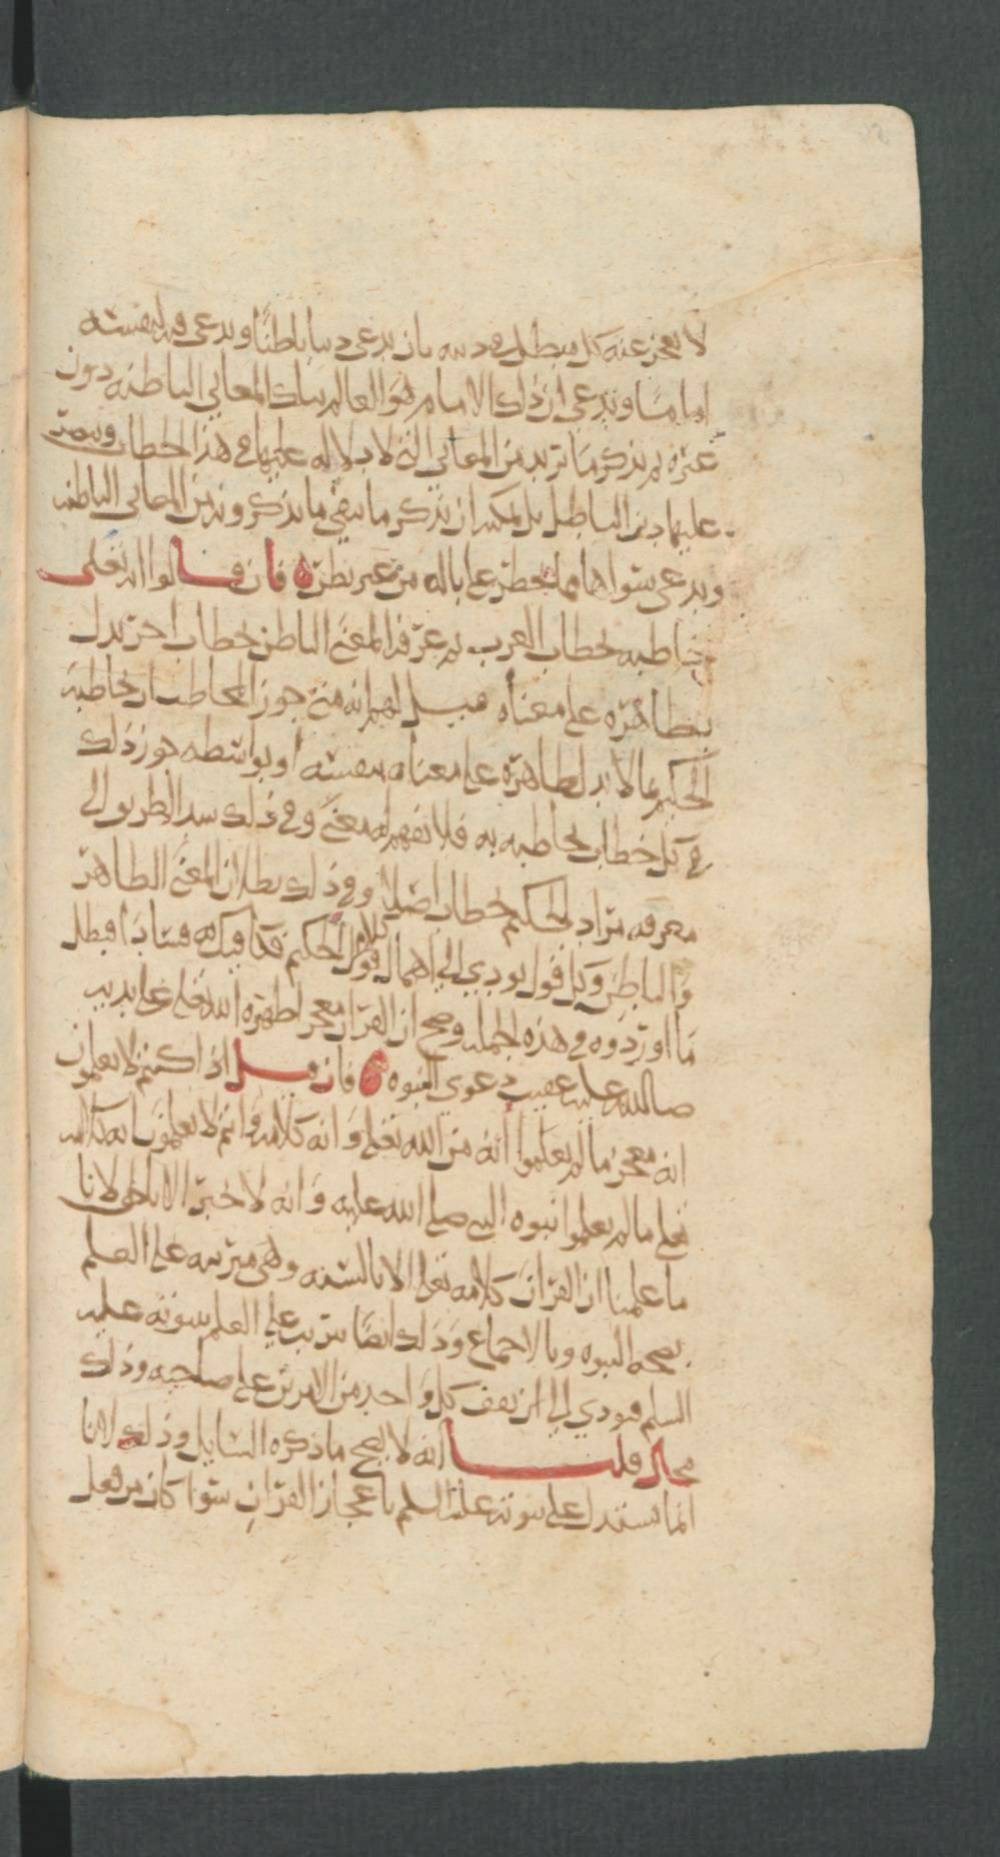 لا يعجز عنه كل مبطل في دينه بان يدعي دينا باطنا ويدعي فيه لنفسه
اماما ويدعي ان ذلك الامام هو العالم بتلك المعاني الباطنه دون
غيره ثم يذكر ما يريد من المعاني التي لا دلاله عليها في هذا الخطاب
عليها دين الباطل بل يمكنه ان يذكر ما ينفي ما يذكرونه من المعاني الباطنه
ويدعي سواها مما يخطر على باله من غير نظر ه فان قالوا انه تعلى
خاطبه بخطاب العرب ثم عرفه المعنى الباطن بخطاب اخر يدل
بظاهره على معناه قيل لهم انه متى جوز المخاطب ان يخاطبه
الحكيم بما لا يدل بظاهره على معناه بنفسه او بواسطه جوز ذلك
في كل خطاب يخاطبه به فلا يفهم له معنى وفي ذلك سد الطريق الى
معرفه مراد الحكيم بخطاب اصلا وفي ذلك بطلان المعنى الظاهر
والباطن وكل قول يودي الى اهمال كلام الحكيم فكافيك به فسادا فبطل
ما اوردوه في هذه الجمله وصح ان القران معجز اظهره الله تعلى على يديه
صلى الله عليه عقيب دعوى النبوه ه فان قيل اذا كنتم لا تعلمون
انه معجز ما لم تعلموا انه من الله تعلى وانه كلامه وانتم لا تعلمون انه كلامه
تعلى ما لم تعلموا نبوه النبي صلى الله عليه وانه لا يخبر الا بالحق لانا
ما علمنا ان القران كلامه تعلى الا بالسنه وهي مترتبه على العلم
بصحه النبوه وبالاجماع وذلك ايضا يترتب على العلم بنبوته عليه
السلم فيودي الى ان يقف كل واحد من الامرين على صاحبه وذلك
محال قلنا انه لا يصح ما ذكره السايل وذلك لانا
انما نستدل على نبوته عليه السلم باعجاز القران سوا كان من فعل